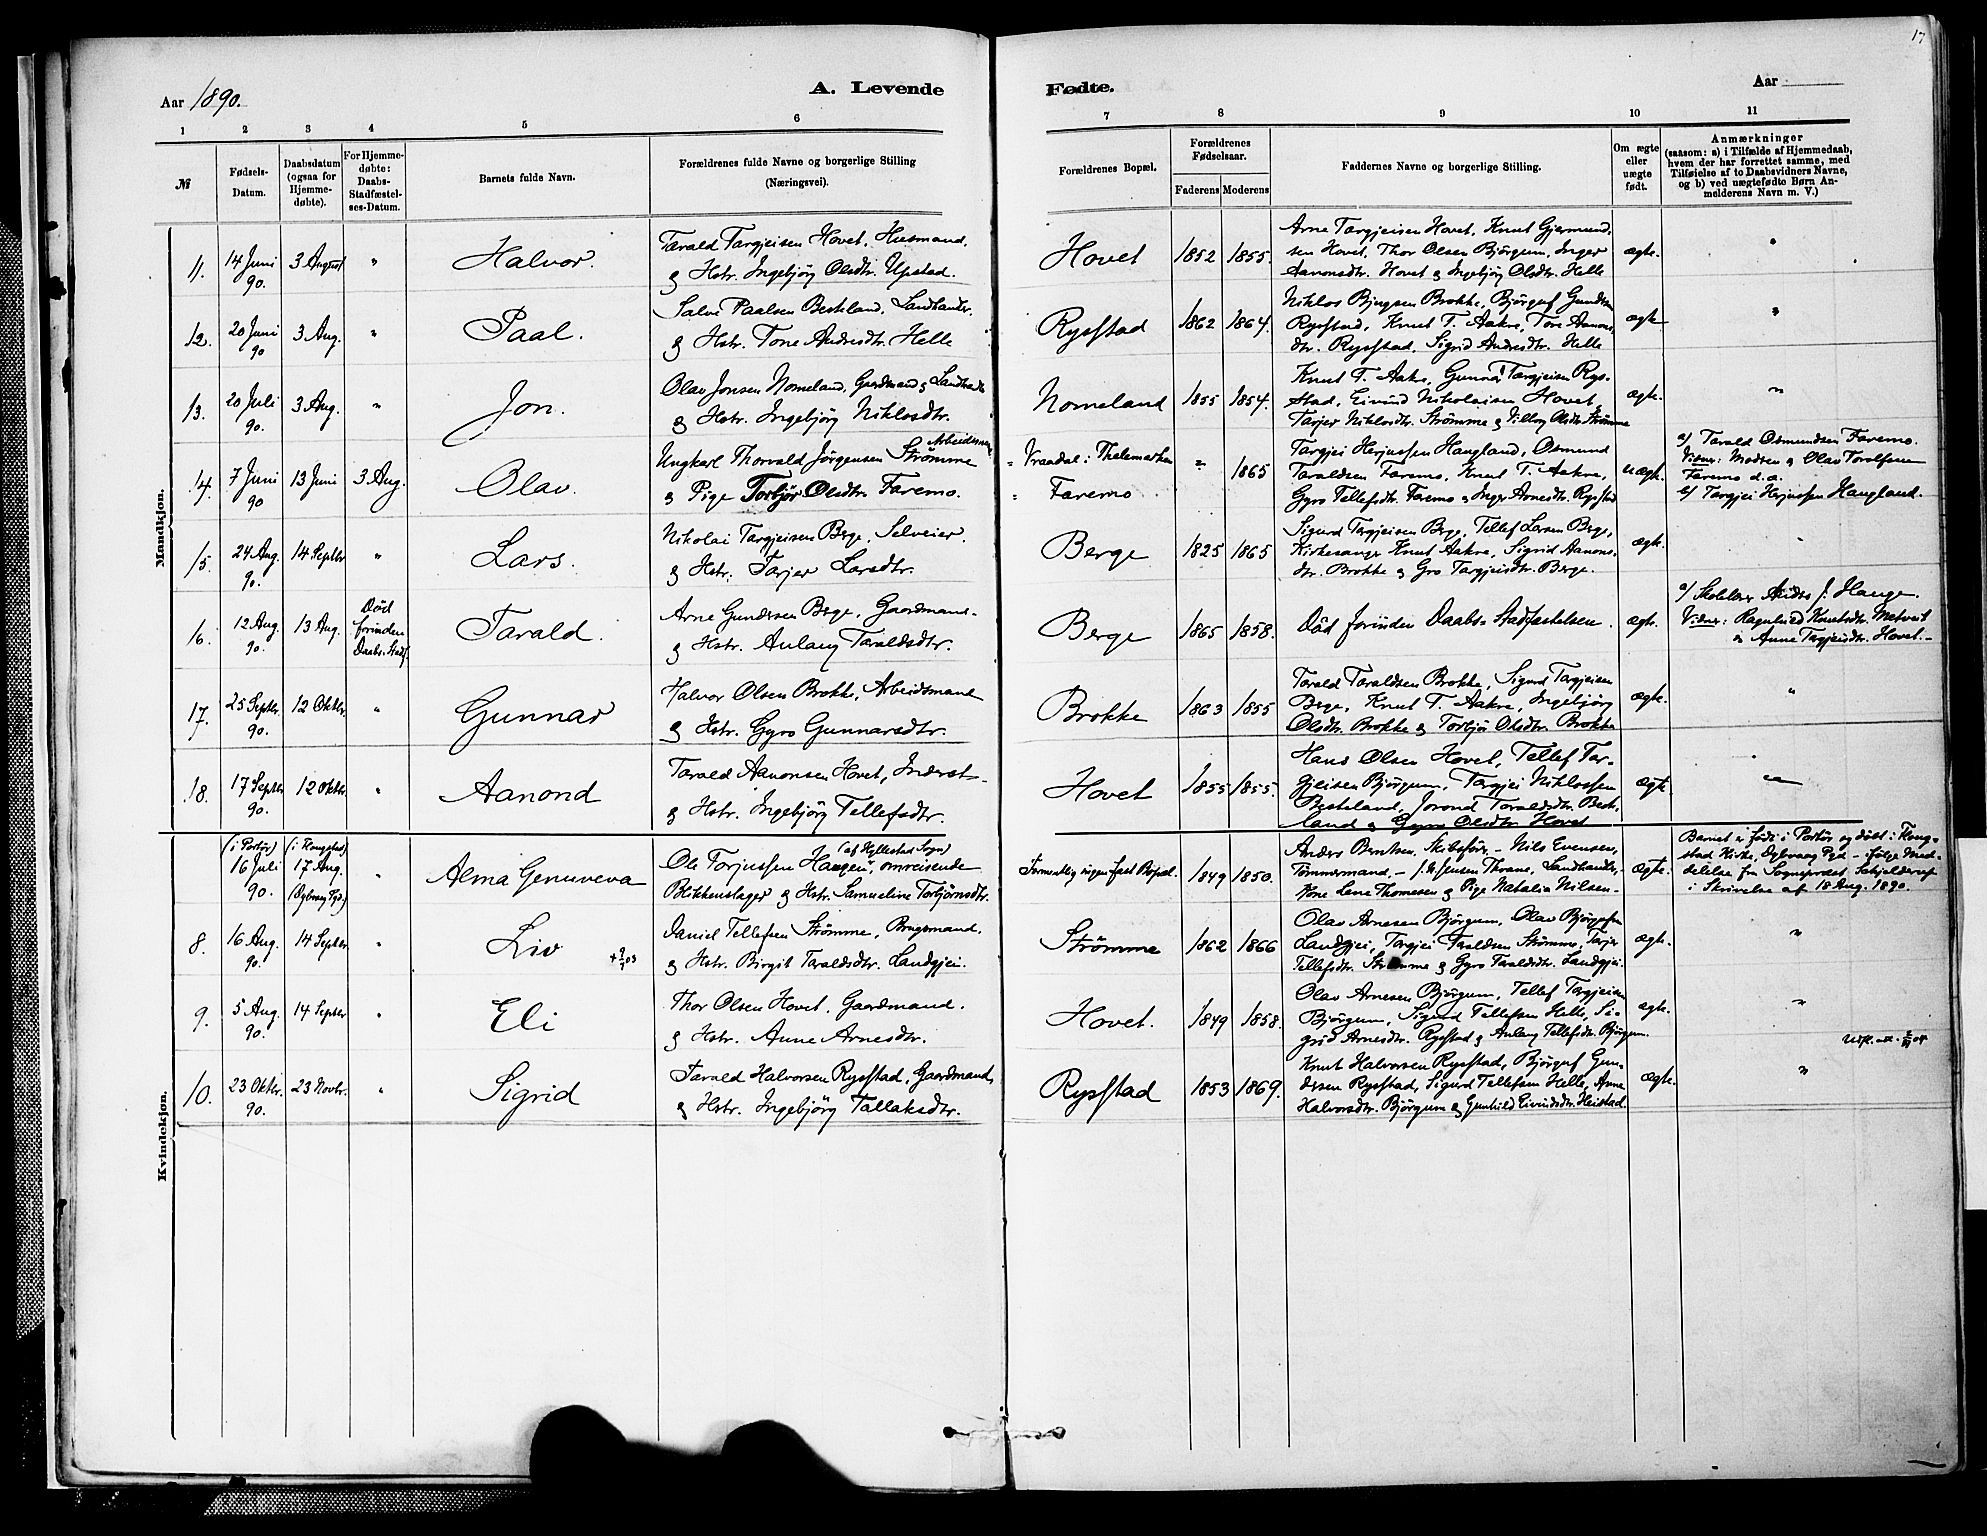 17
Aar 1890.
A. Levende Fødte.
Aar
1 2 3 4 5 6 7 8 9 10 11
№
Fødsels-Datum.
Daabsdatum (ogsaa for Hjemmedøbte).
For Hjemmedøbte: Daabs-Stadfæstelses-Datum.
Barnets fulde Navn.
Forældrenes fulde Navne og borgerlige Stilling
(Næringsvei).
Forældrenes Bopæl.
Forældrenes Fødselsaar.
Faderens Moderens
Faddernes Navne og borgerlige Stilling.
Om ægte eller uægte født.
Anmærkninger
(saasom: a) i Tilfælde af Hjemmedaab,
hvem der har forrettet samme, med
Tilføielse af to Daabsvidners Navne,
og b) ved uægtefødte Børn Anmelderens Navn m. V.)
Mandkjøn.
11. 14 Juni 90. 3 August " Halvor.
Tarald Targjeisen Hovet, Husmand,
& Hstr. Ingebjörg Olsdtr. Upstad.
Hovet 1852 1855.
Arne Targjeisen Hovet, Knut Gjermund-
sen Hovet, Thor Olsen Björgum, Inger
Aanonsdtr. Hovet & Ingebjörg Olsdtr. Helle
ægte. "
12. 20 Juni 90 3 Aug. " Paal.
Salve Paalsen Besteland, Landhandler,
& Hstr. Tone Andresdtr. Helle
Rysstad 1862 1864.
Niklos Brokke, Björguf Gundersen
Rysstad, Knut T. Aakre, Tore Aanons-
dtr. Rysstad, Sigrid Andresdtr. Helle
ægte "
13. 20 Juli 90. 3 Aug. " Jon.
Olav Jonsen Nomeland, Gaardmand & Landhandler
& Hstr. Ingebjörg Niklosdtr.
Nomeland 1855 1854.
Knut T. Aakre, Gunnar Targjeisen Rys-
stad, Eivind Nikolaisen Hovet,
Tarjer Niklosdtr. Strömme & Vilborg Olsdtr. Strömme
ægte. "
14. 7 Juni 90 13 Juni 3 Aug. Olav.
Ungkarl Thorvald Jörgensen Strömme Arbeidsmand
& Pige Torbjör Olsdtr. Faremo.
Vraadal i Thelemarken
Faremo
" 1865
Targjei Herjussen Haugland, Osmund
Taraldsen Faremo, Knut T. Aakre,
Gyro Tellefsdtr. Faremo & Inger Arnesdtr. Rysstad
uægte.
a/ Tarald Osmundsen Faremo.
Vidner: Moderen & Olav Torolfsen
Faremo d.a.
b/ Targjei Herjussen Haugland.
15. 24 Aug. 90. 14 Septbr " Lars.
Nikolai Targjeisen Berge, Selveier.
& Hstr. Tarjer Larsdtr.
Berge 1825 1865
Sigurd Targjeisen Berge, Tellef Larsen Berge,
Kirkesanger Knut Aakre, Sigrid Aanons-
dtr. Brokke & Gro Targjeisdtr. Berge.
ægte. "
16. 12 Aug. 90. 13 Aug. Død forinden Daabs. Stadf. Tarald.
Arne Gundersen Berge, Gaardmand-
& Hstr. Aulaug Taraldsdtr.
Berge 1865 1858.
Død forinden Daabs-Stadfæstelsen.
ægte.
a/ Skolelærer Andres J. Hauge.
Vidner: Ragnhild Knutsdtr. Metveit
& Anne Targjeisdtr. Hovet.-
17. 25 Septbr. 90. 12 Oktbr. " Gunnar
Halvor Olsen Brokke, Arbeidsmand
& Hstr. Gyro Gunnarsdtr.
Brokke 1863 1855
Tarald Taraldsen Brokke, Sigurd Targjeisen
Berge, Knut T. Aakre, Ingebjörg
Olsdtr. Brokke & Torbjör Olsdtr. Brokke
ægte. "
18. 17 Septbr 90. 12 Oktbr. " Aanond
Tarald Aanonsen Hovet, Inderst-
& Hstr. Ingebjörg Tellefsdtr.
Hovet 1855 1855.
Hans Olsen Hovet, Tellef Tar-
gjeisen Björgum, Targjei Niklossen
Besteland, Jorond Taraldsdtr. Beste-
land & Gyro Olsdtr. Hovet
ægte. "
Kvindekjøn.
(i Portör) 16 Juli 90. (i Flougstad) 17 Aug. (Dybvaag Pgd.) " Alma Genuveva
Ole Torjussen Haugen, (af Hyllestad Sogn) omreisende
Blikkenslager & Hstr. Samueline Torbjörnsdtr.
Formentlig ingen fast Bopæl. 1849 1850.
Anders Berntsen, Skibsförer, - Nils Evensen,
Tömmermand, - J. A. Jensen Thorne, Landhandler,
Kone Lene Thomesen & Pige Natalia Nilsen-
ægte.
Barnet er födt i Portör og döbt i Floug-
stad Kirke, Dybvaag Pgd - ifølge Med-
delelse fra Sognepræst Schjelderup
i Skrivelse af 18 Aug. 1890.
8. 16 Aug. 90. 14 Septbr " Liv
Daniel Tellefsen Strömme, Brugsmand.
& Hstr. Birgit Taraldsdtr. Landgjei.
Strömme 1862 1866
Olav Arnesen Björgum, Olav Björgufsen
Landgjei, Targjei Taraldsen Strömme, Tarjer
Tellefsdtr. Strömme & Gyro Taraldsdtr. Landgjei.
ægte. "
9. 5 Aug. 90. 14 Septbr " Eli
Thor Olsen Hovet, Gaardmand.
& Hstr. Anne Arnesdtr.
Hovet. 1849 1858.
Olav Arnesen Björgum, Tellef Targjeisen
Björgum, Sigurd Tellefsen Helle, Si-
grid Arnesdtr. Rysstad & Aulaug Tellefsdtr. Björgum.
ægte. "
10. 23 Oktbr. 90. 23 Novbr. " Sigrid
Tarald Halvorsen Rysstad, Gaardmand,
& Hstr. Ingebjörg Tallaksdtr.
Rysstad 1853 1869.
Knut Halvorsen Rysstad, Björguf Gun-
dersen Rysstad, Sigurd Tellefsen Helle, Anne
Halvorsdtr. Björgum & Gunhild Eivindsdtr. Heistad.
ægte. "